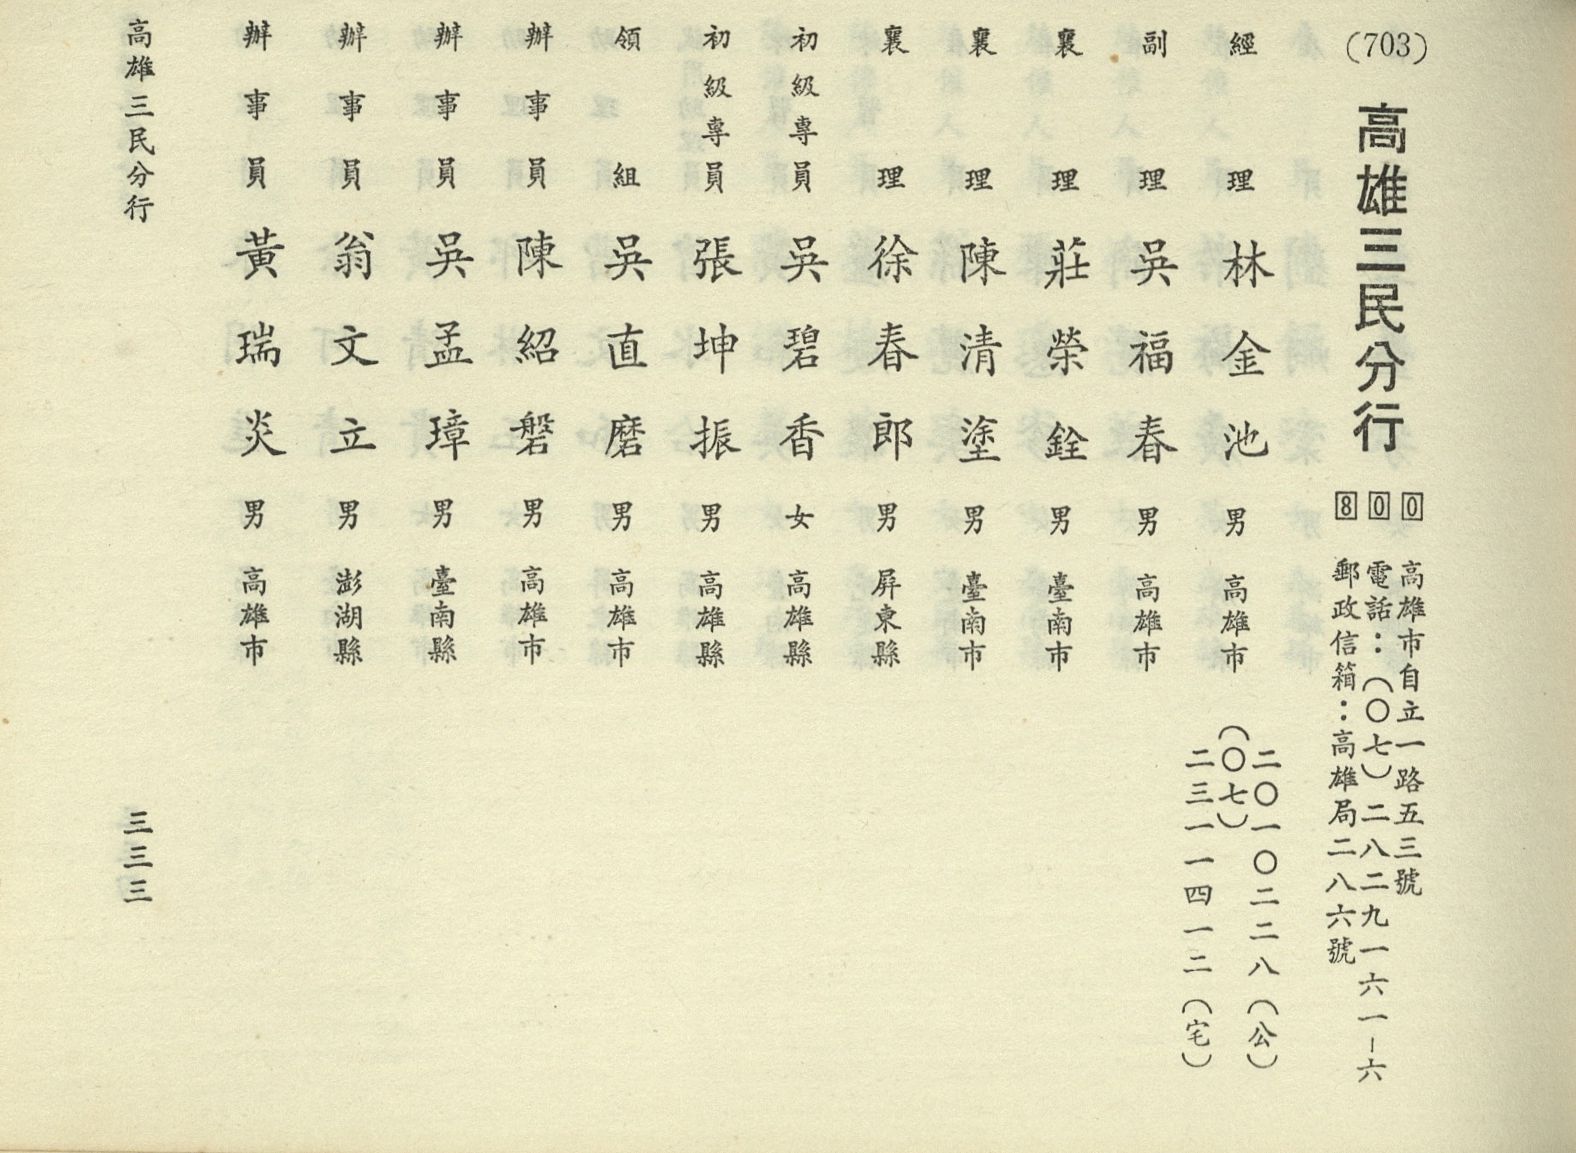 (703)
高雄三民分行
800
高雄市自立一路五三號
電話：(〇七)二八二九一六一－六
郵政信箱：高雄局二八六號
經理 林金池 男 高雄市
二〇一〇二二八(公)
(〇七)
二三一一四一二(宅)
副理 吳福春 男 高雄市
襄理 莊榮銓 男 臺南市
襄理 陳清塗 男 臺南市
襄理 徐春郎 男 屏東縣
初級專員 吳碧香 女 高雄縣
初級專員 張坤振 男 高雄縣
領組 吳直磨 男 高雄市
辦事員 陳紹磐 男 高雄市
辦事員 吳孟璋 男 臺南縣
辦事員 翁文立 男 澎湖縣
辦事員 黃瑞炎 男 高雄市
高雄三民分行
三三三